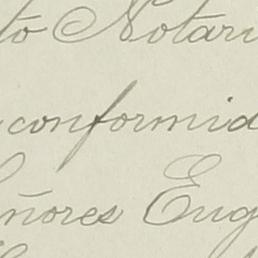 to Notari
conformid
ñores Eug